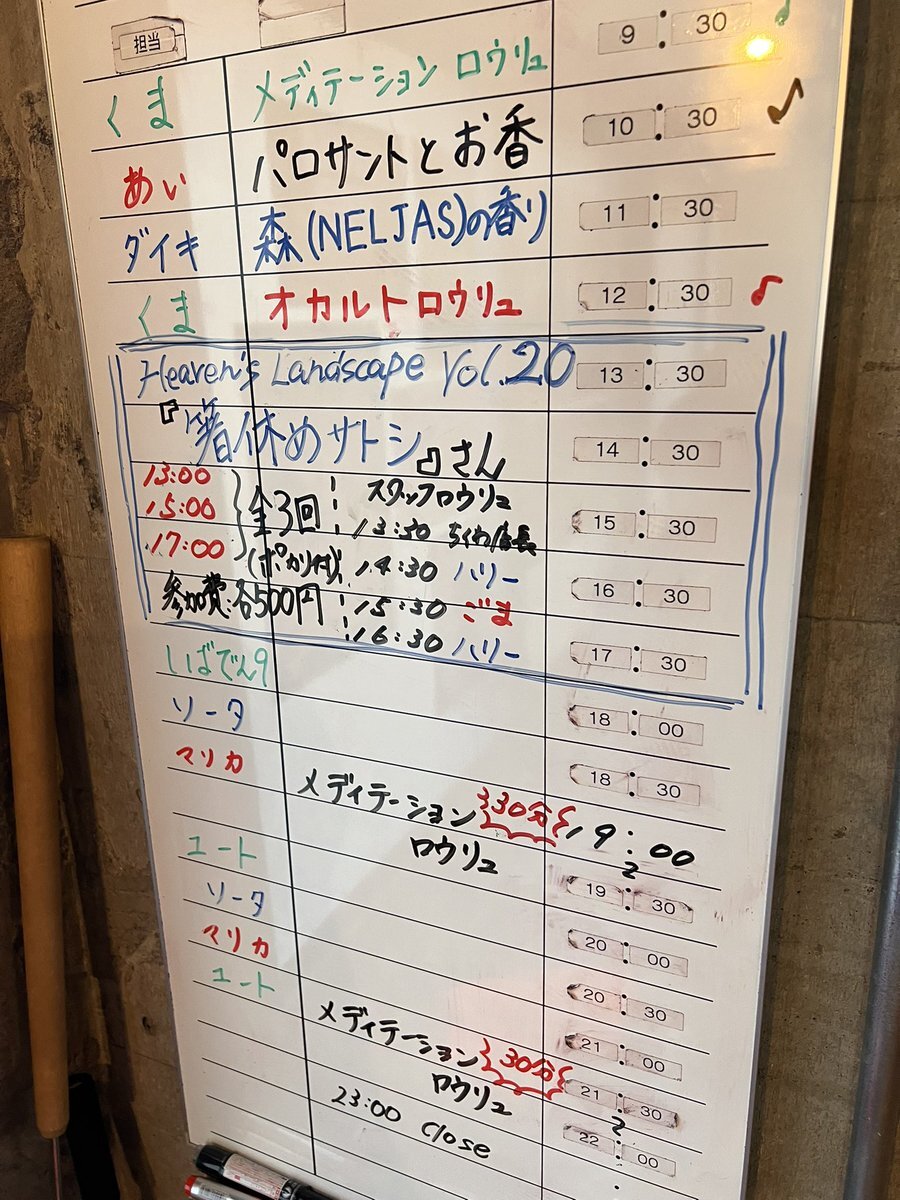 担当
9:30
くま メディテーション ロウリュ 10:30
めい パロサントとお香 11:30
ダイキ 森(NELJAS)の香り 12:30
くま オカルトロウリュ
Heaven's Landscape Vol.20 13:30
『箸休めサトシ』さん 14:30
13:00
15:00
17:00
全3回
(ポカリ付)
参加費:各500円
スタッフロウリュ
13:30 ちくわ店長
14:30 ハリー
15:30 ごま
16:30 ハリー
15:30
16:30
17:30
しばでん9 18:00
ソータ 18:30
マリカ メディテーション ロウリュ 30分 19:00
19:30
ユート 20:00
ソータ 20:30
マリカ 21:00
ユート メディテーション ロウリュ 30分 21:30
22:00
23:00 Close